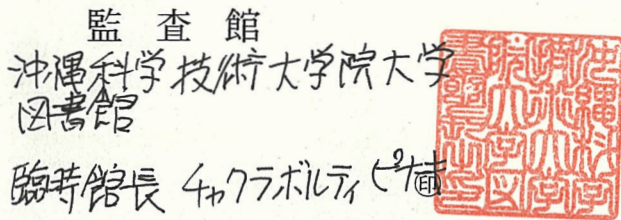 監査館
沖縄科学技術大学院大学
図書館
臨時館長 チャクラボルティ ピナキ㊞
沖縄科学
技術大学
院大学図
書館長之印